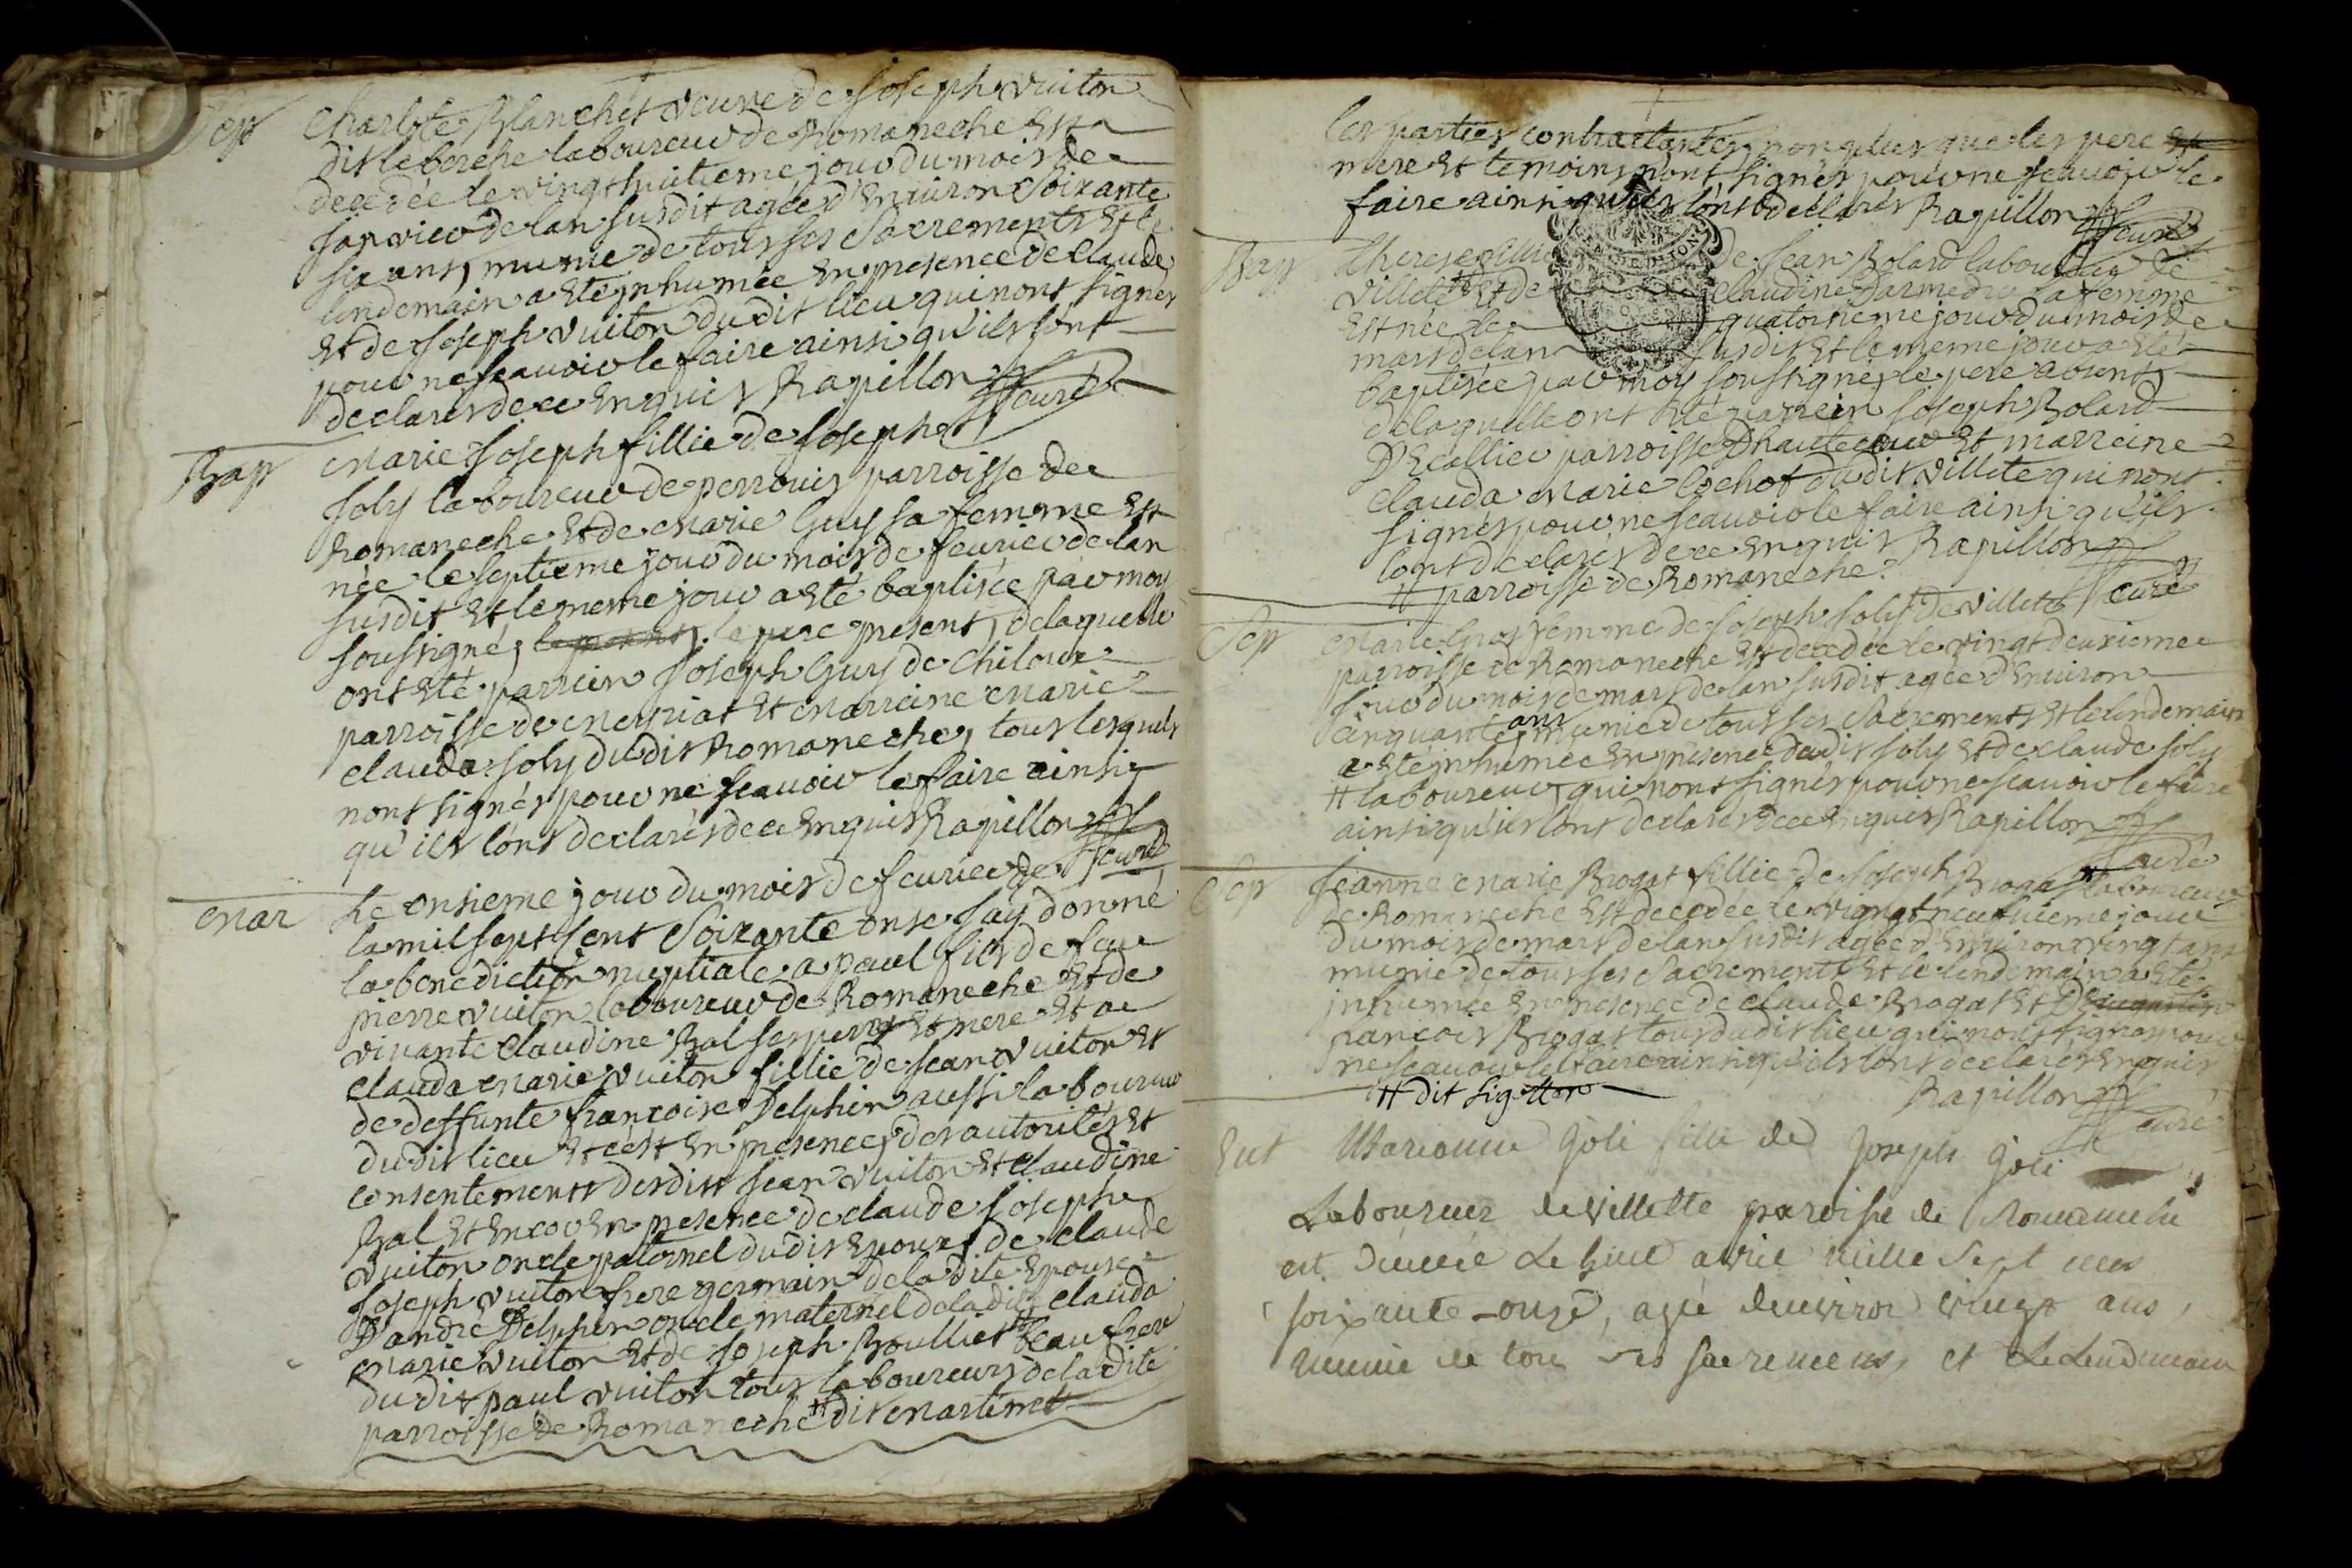 Sep Charlote Blanchet veuve de Joseph vuiton
dit leborche laboureur de Romaneche est
decedée le vingt huitieme jour du mois de
janvier de lan susdit agée d'environ soixante
six ans, munie de tous ses sacrements et le
lendemain a eté inhumée en presence de claude
et de Joseph vuiton du dit lieu qui nont signés
pour ne scavoir le faire ainsi qu'ils l'ont
declarés de ce enquis Rapillon curé
Bap Marie Joseph fillie de Joseph
Joly laboureur de perrouis parroisse de
Romaneche et de Marie Guy sa femme est
née le septieme jour du mois de fevrier de lan
susdit et le meme jour a eté baptisée par moy
soussigné, le pere present, de laquelle
ont eté parrein Joseph Guy de Chiloux
parroisse de Meyriat et marreine Marie
clauda Joly du dit Romaneche, tous lesquels
nont signés pour ne scavoir le faire ainsi
qu'ils l'ont declarés de ce enquis Rapillon curé
Mar Le onsieme jour du mois de fevrier de
lan mil sept sent soixante onse j'ay donné
la benediction nuptiale a paul fils de feu
pierre vuiton laboureur de Romaneche et de
vivante claudine Bal ses pere et mere et a
clauda Marie vuiton fillie de Jean vuiton et
de deffunte françoise Delphin aussi laboureur
du dit lieu et c'est en presence, des autorités et
consentements desdits Jean vuiton et claudine
Bal et encor en presence de claude Joseph
vuiton oncle paternel du dit epoux, de claude
Joseph vuiton frere germain de la dite epouse
D'andre Delphin oncle maternel de la dite clauda
Marie vuiton et de Joseph Boulliet # beau frere
du dit paul vuiton tous laboureurs de la dite
parroisse de Romaneche # dit Martinet
les parties contractantes, non plus que les pere et
mere et temoins n'ont signés pour ne scavoir le
faire ainsi qu'ils l'ont declarés Rapillon curé
Bap Therese fillie de Jean Bolard laboureur de
villete # et de claudine Darmedru sa femme
est née le quatorsieme jour du mois de
mars de lan susdit et le meme jour a eté
baptisée par moy soussigné, le pere absent,
de laquelle ont eté parrein Joseph Bolard
D'Ecallier parroisse Dhautecour et marreine
clauda Marie Cochot du dit villete qui nont
signés pour ne scavoir le faire ainsi qu'ils
l'ont declarés de ce enquis Rapillon
# parroisse de Romaneche. curé
Sep Marie Gros femme de Joseph Joly de villete #
parroisse de Romaneche est decedée le vingt deuxieme
jour du mois de mars de lan susdit agée d'environ
cinquante ans munie de tous ses sacrements et le lendemain
a eté inhumée en presence du dit Joly et de claude Joly
# laboureur, qui nont signés pour ne scavoir le faire
ainsi qu'ils l'ont declarés de ce enquis Rapillon
curé
Sep Jeanne Marie Brogat fillie de Joseph Brogat # laboureur
de Romaneche est decedée le vingt neufvieme jour
du mois de mars de lan susdit agée d'environ vingt ans
munie de tous ses sacrements et le lendemain a eté
inhumée en presence de claude Brogat et
françois Brogat tous du dit lieu qui nont signés pour
ne scavoir le faire ainsi qu'ils l'ont declarés enquis
# dit Rapillon
curé
Ent Marianne Joli fille de Joseph Joli
Laboureur de villette paroisse de Romaneche
est Decedée Le huit avril mille sept cens
soixante-onze, agée denviron vingt ans,
munie de tous ses sacremens, et Le Lendemain